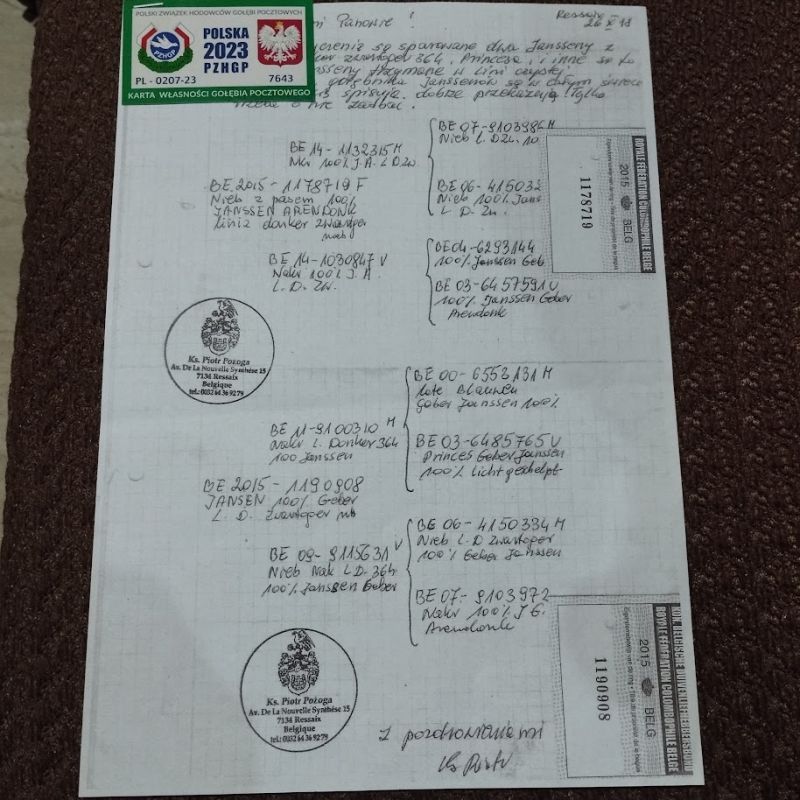 POLSKI ZWIĄZEK HODOWCÓW GOŁĘBI POCZTOWYCH
POLSKA
2023
PZHGP
PZHGP
PL - 0207-23
7643
KARTA WŁASNOŚCI GOŁĘBIA POCZTOWEGO
Panowie!
Ressaix
są sparowane dwa Jansseny z
364, Princesa, i inne są to
w linii czystej
Janssenów są w całym świecie
spisują, dobrze przekazują! Tylko
trzeba o nie zadbać.
BE 14-1132315 M
Nkr 100% J.A. L D.Zw.
BE 07-9103986 M
Nieb L. D.Zw. 10
BE 2015-1178719 F
Nieb z pasem 100%
JANSSEN ARENDONK
linia donker zwartoger
BE 06-415032
Nieb 100% Jans
L D. Zw.
BE 14-1030847 V
Nakr 100% J.A.
L. D. Zw.
BE 04-6293144
100% Janssen Geb
BE 03-6457591 V
100% Janssen Geber
Arendonk
1178719
2015 BELG
ROYALE FEDERATION COLOMBOPHILE BELGE
Ks. Piotr Pożoga
Av. De La Nouvelle Synthèse 15
7134 Ressaix
Belgique
tel.: 0032 64 36 92 79
BE 00-6553131 M
Late Blauwen
Geber Janssen 100%
BE 11-9100310 M
Nakr L. Donker 364
100 Janssen
BE 03-6485765 V
Princes Geber Janssen
100% Lichtgeschelpt
BE 2015-1190908
JANSEN 100% Geber
L. D. Zwartoger
BE 06-4150334 M
Nieb L.D Zwartoger
100% Geber Janssen
BE 09-9115631 V
Nieb Nak L D. 364
100% Janssen Geber
BE 07-9103972
Nakr 100% J G.
Arendonk
1190908
2015 BELG
ROYALE FEDERATION COLOMBOPHILE BELGE
Ks. Piotr Pożoga
Av. De La Nouvelle Synthèse 15
7134 Ressaix
Belgique
tel.: 0032 64 36 92 79
Z pozdrowieniami
Ks Piotr